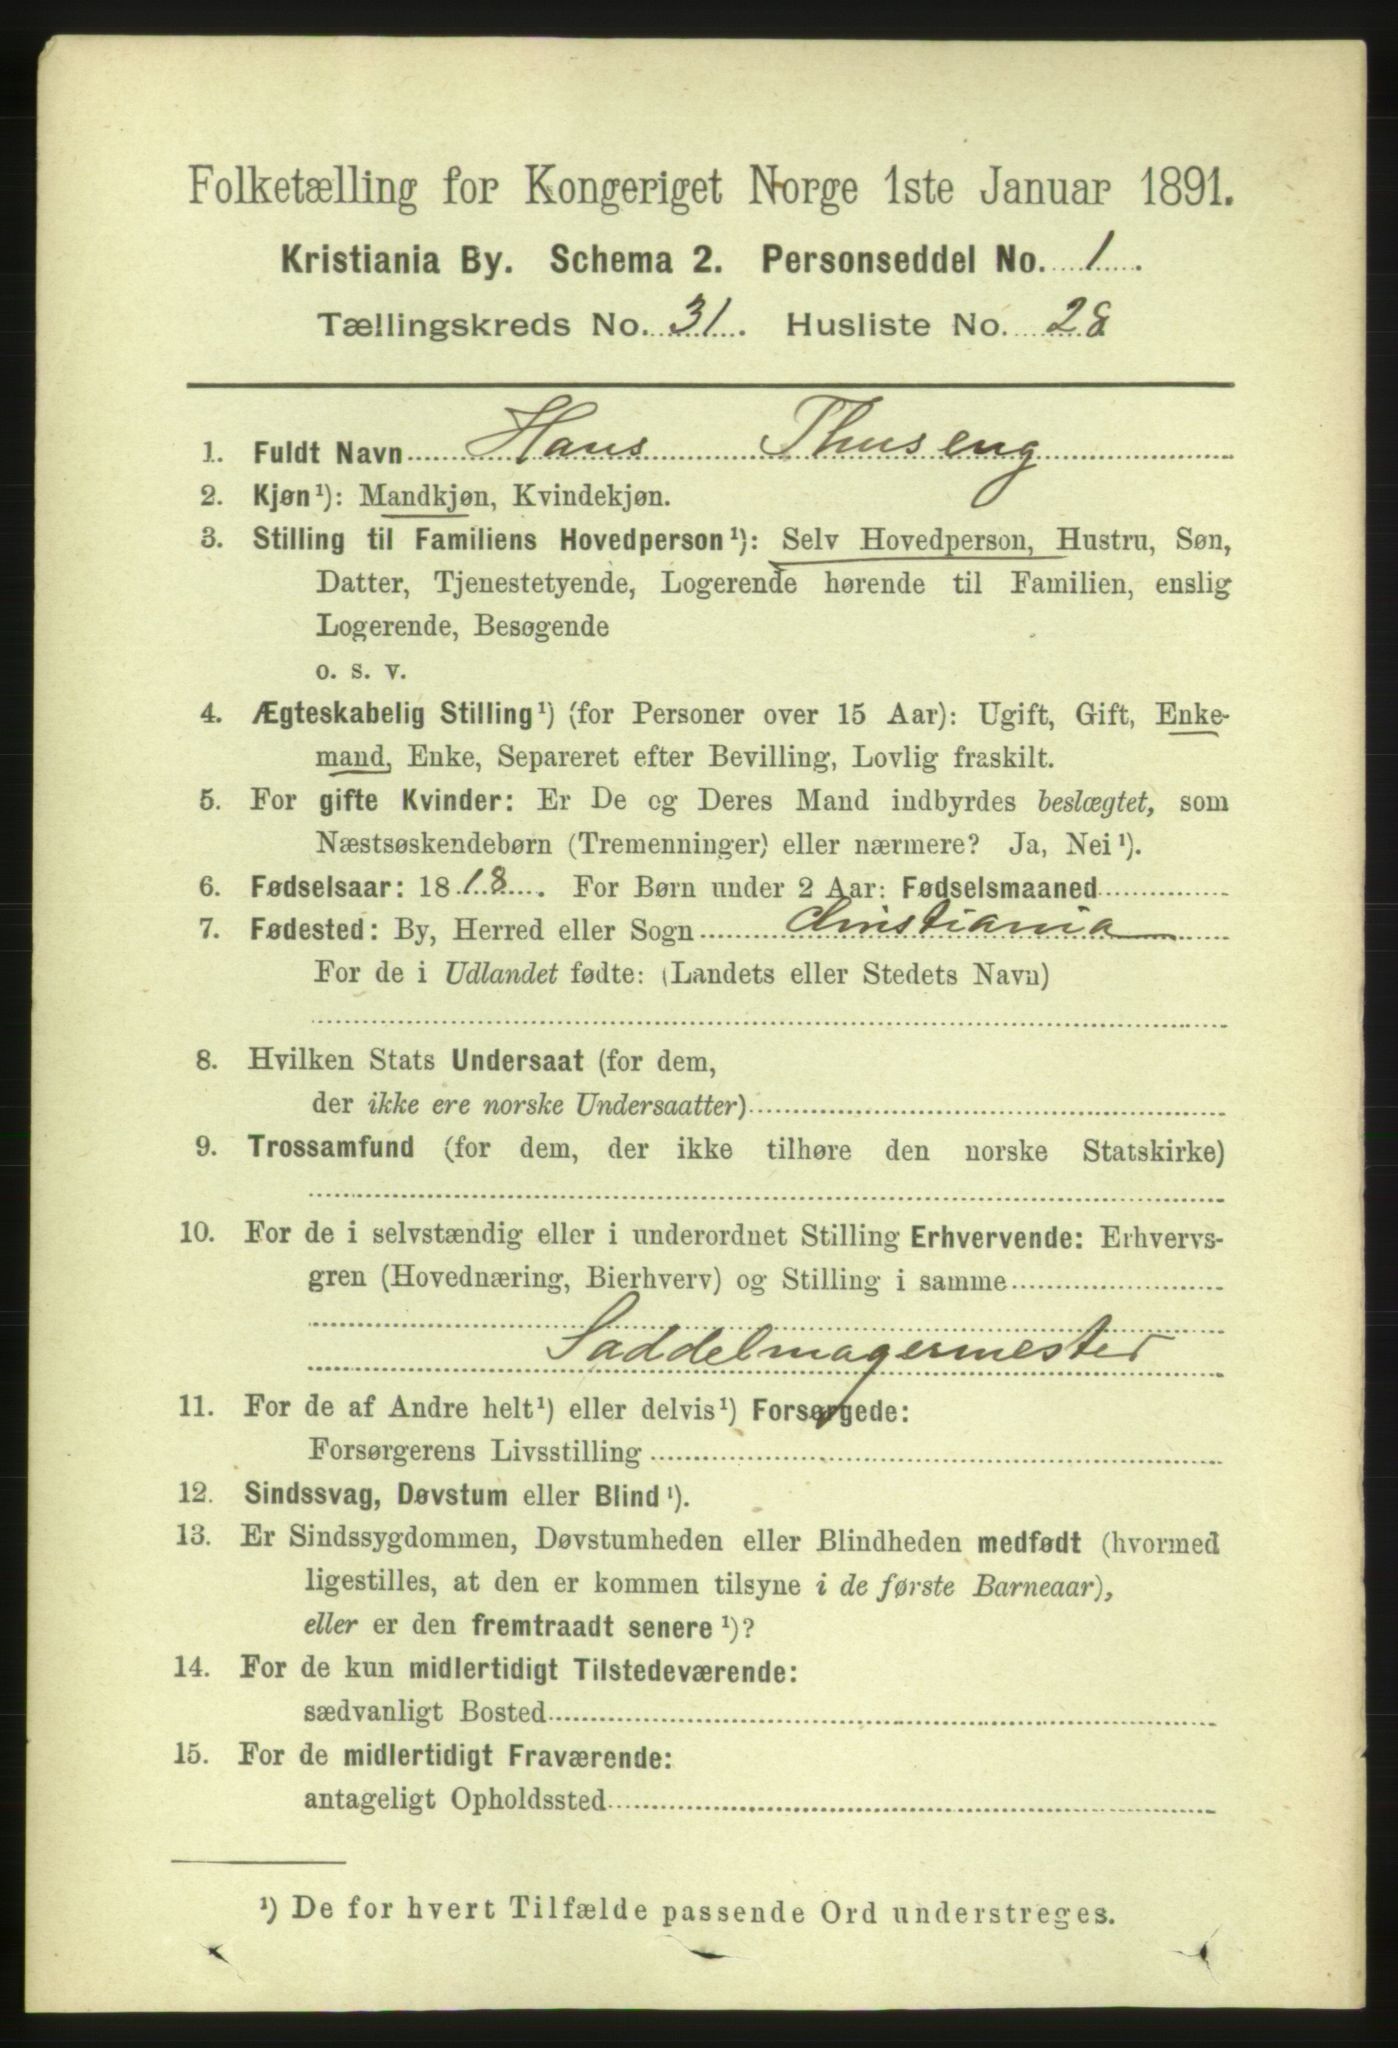 Folketælling for Kongeriget Norge 1ste Januar 1891.
Kristiania By. Schema 2. Personseddel No. 1.
Tællingskreds No. 31. Husliste No. 28
1. Fuldt Navn Hans Thuseng
2. Kjøn¹): Mandkjøn, Kvindekjøn.
3. Stilling til Familiens Hovedperson¹): Selv Hovedperson, Hustru, Søn,
Datter, Tjenestetyende, Logerende hørende til Familien, enslig
Logerende, Besøgende
o. s. v.
4. Ægteskabelig Stilling¹) (for Personer over 15 Aar): Ugift, Gift, Enke-
mand, Enke, Separeret efter Bevilling, Lovlig fraskilt.
5. For gifte Kvinder: Er De og Deres Mand indbyrdes beslægtet, som
Næstsøskendebørn (Tremenninger) eller nærmere? Ja, Nei¹).
6. Fødselsaar: 1818. For Børn under 2 Aar: Fødselsmaaned
7. Fødested: By, Herred eller Sogn Christiania
For de i Udlandet fødte: (Landets eller Stedets Navn)
8. Hvilken Stats Undersaat (for dem,
der ikke ere norske Undersaatter)
9. Trossamfund (for dem, der ikke tilhøre den norske Statskirke)
10. For de i selvstændig eller i underordnet Stilling Erhvervende: Erhvervs-
gren (Hovednæring, Bierhverv) og Stilling i samme
Saddelmagermester
11. For de af Andre helt¹) eller delvis¹) Forsørgede:
Forsørgerens Livsstilling
12. Sindssvag, Døvstum eller Blind¹).
13. Er Sindssygdommen, Døvstumheden eller Blindheden medfødt (hvormed
ligestilles, at den er kommen tilsyne i de første Barneaar),
eller er den fremtraadt senere¹)?
14. For de kun midlertidigt Tilstedeværende:
sædvanligt Bosted
15. For de midlertidigt Fraværende:
antageligt Opholdssted
¹) De for hvert Tilfælde passende Ord understreges.